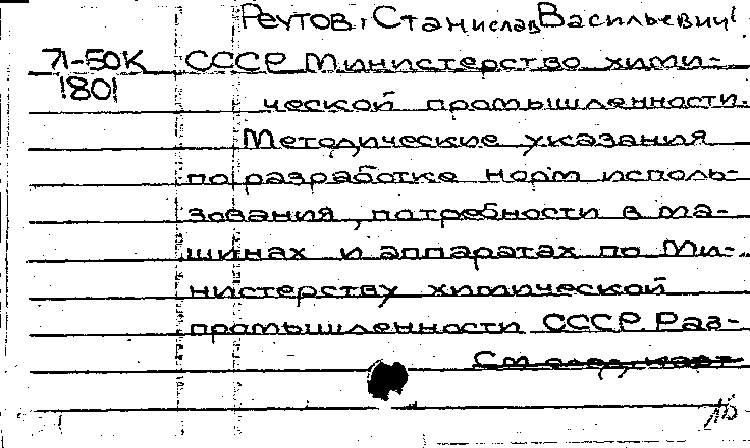 Реутов, Станислав Васильевич
71-50К СССР Министерство хими-
1801 ческой промышленности.
Методические указания
по разработке норм исполь-
зования, потребности в ма-
шинах и аппаратах по Ми-
нистерству химической
промышленности СССР Раз-
См след, карт